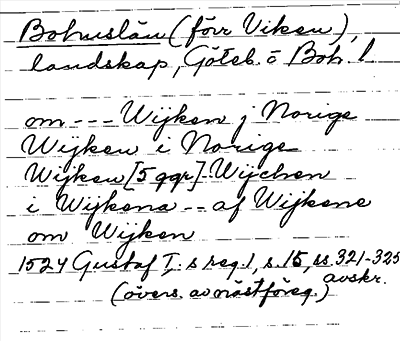 Bohuslän (förr Viken),
landskap, Göteb. o Boh. l
om --- Wijken j Norige
Wijken i Norige
Wijken [5 ggr] Wijchen
i Wijkena -- af Wijkene
om Wijken
1524 Gustaf I:s reg. 1, s. 15, ss. 321-325
avskr.
(övers. av näst föreg.)